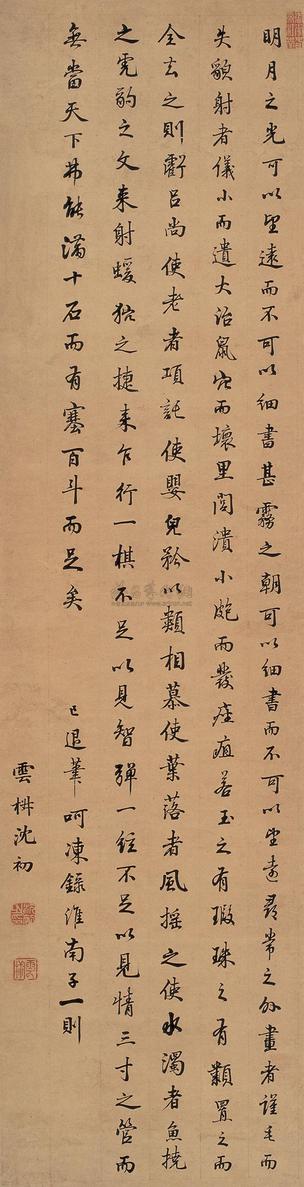 明月之光可以望遠而不可以細書甚霧之朝可以細書而不可以望遠尋常之外畫者謹毛而
失貌射者儀小而遺大治鼠穴而壞里閭潰小皰而發痤疽若玉之有瑕珠之有纇置之而
全去之則虧呂尚使老者項託使嬰兒矜以類相慕使葉落者風搖之使水濁者魚撓
之虎豹之文來射蝯狖之捷來乍行一棋不足以見智彈一弦不足以見情三寸之管而
無當天下弗能滿十石而有塞百斗而足矣
已退筆呵凍錄淮南子一則
雲椒沈初